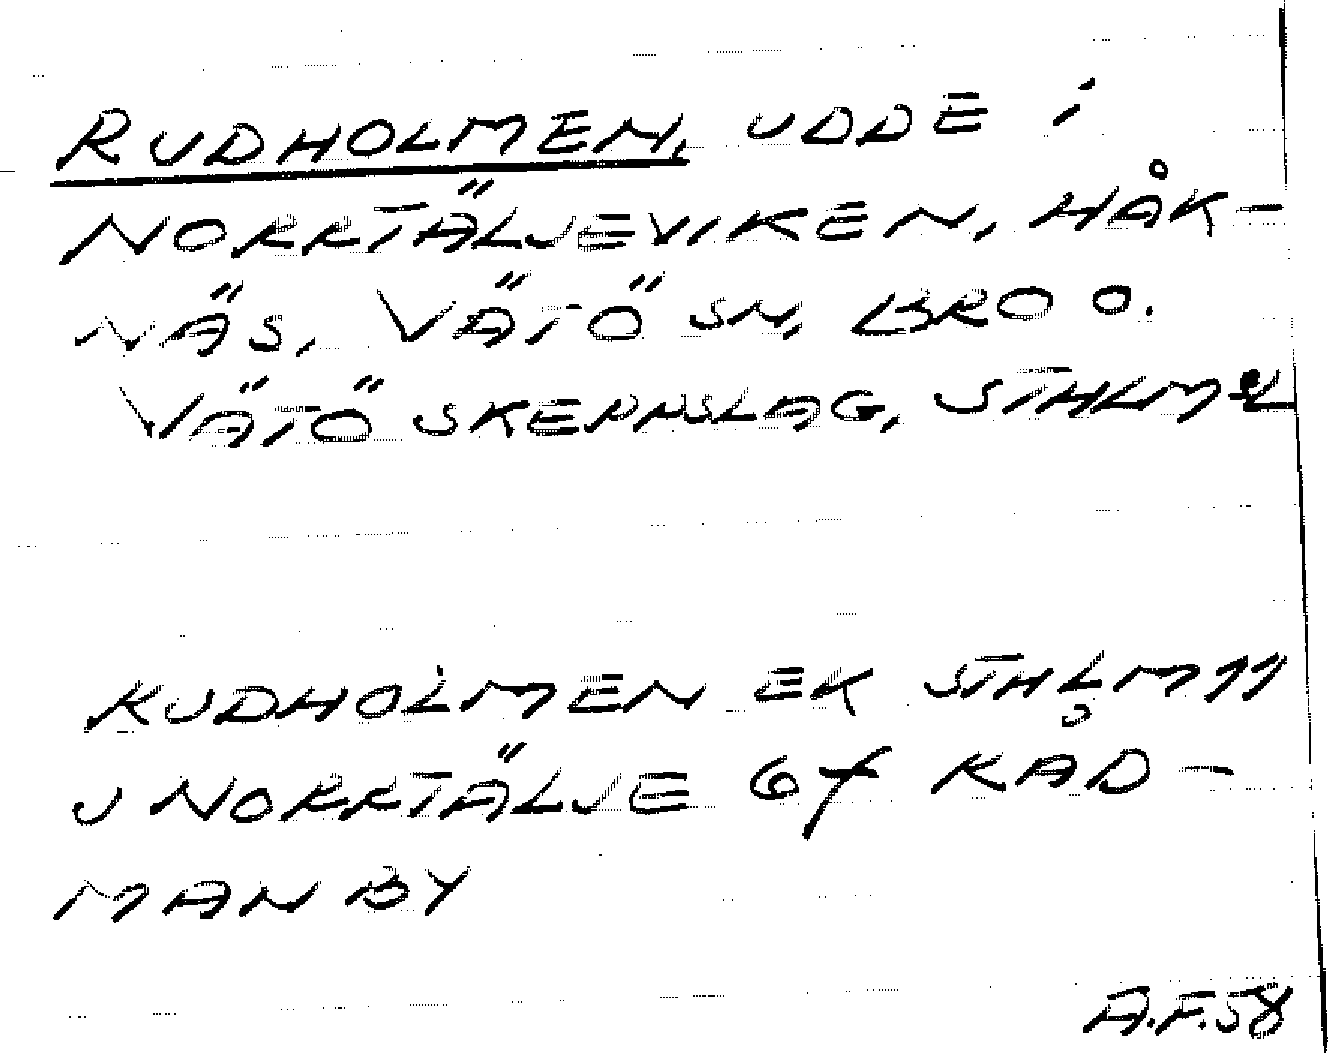 RUDHOLMEN, UDDE i
NORRTÄLJEVIKEN, HÅK-
NÄS, VÄTÖ SN, BRO O.
VÄTÖ SKEPPSLAG, STHLMSL
RUDHOLMEN EK STHLM 11
J NORRTÄLJE 6f RÅD-
MANBY
A.F.58